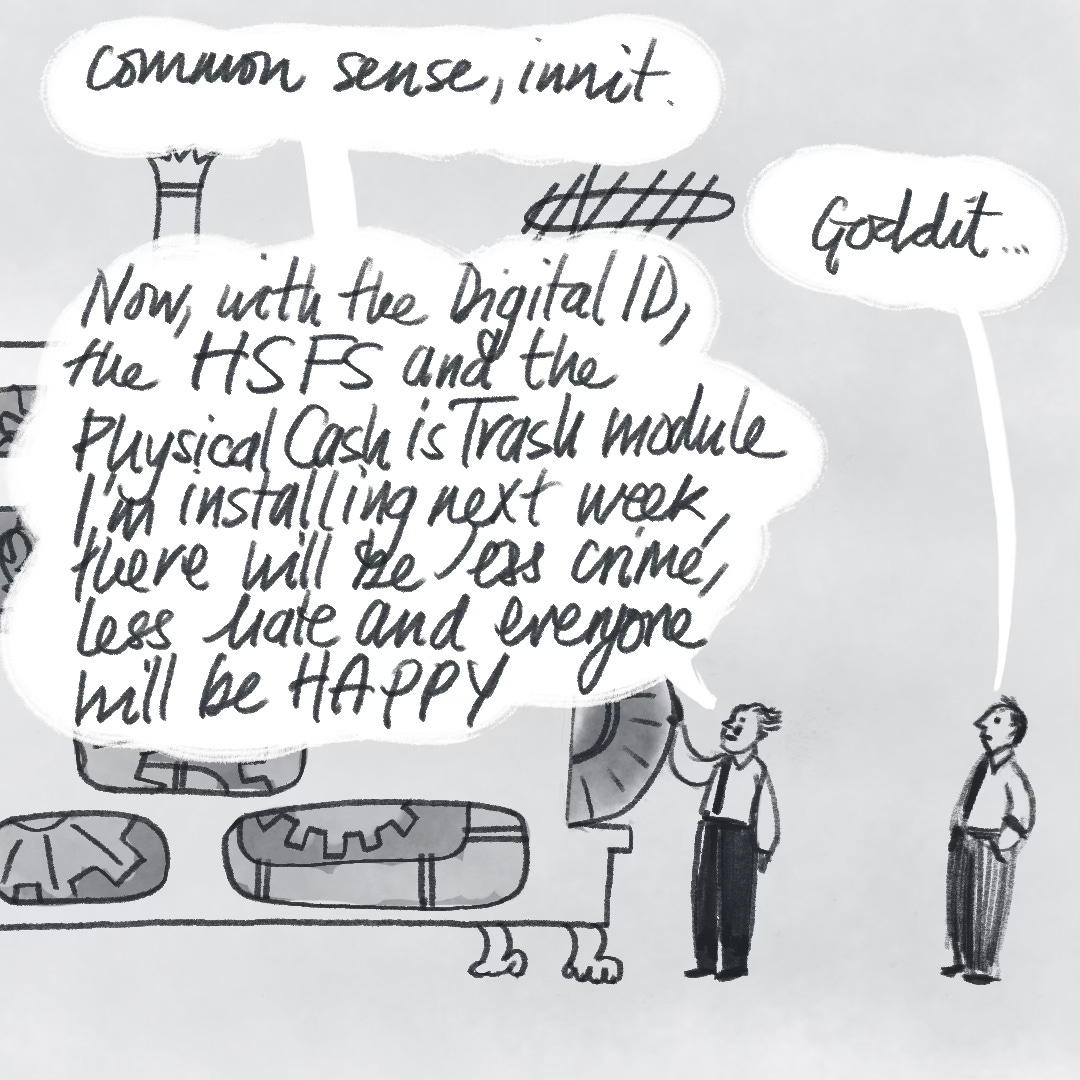 common sense, innit.
Goddit...
Now, with the Digital ID,
the HSFS and the
Physical Cash is Trash module
I'm installing next week,
there will be less crime,
less hate and everyone
will be HAPPY